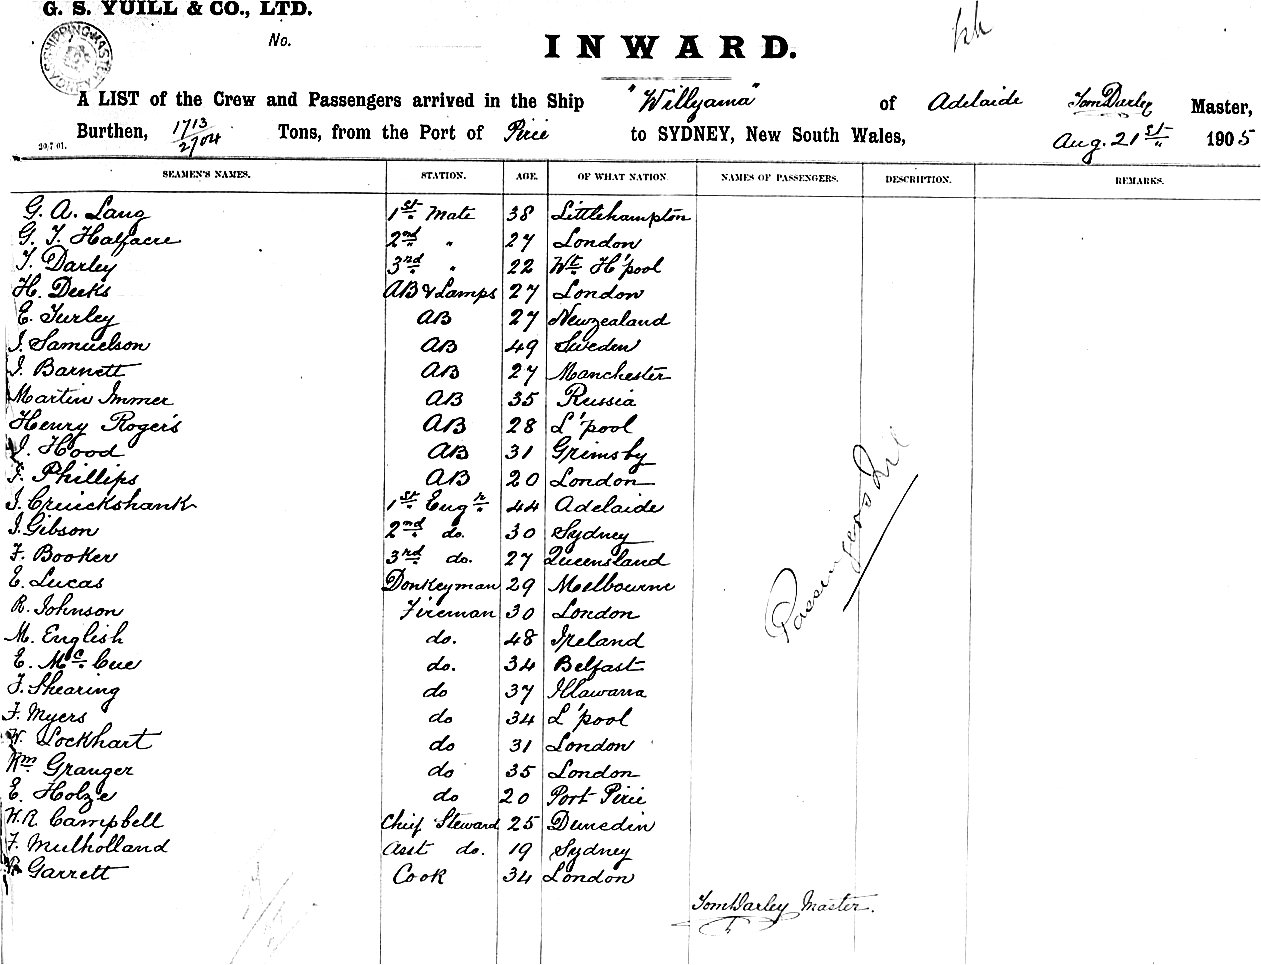 G. S. YUILL & CO., LTD.
No.
INWARD.
SHIPPING MASTER SYDNEY
A LIST of the Crew and Passengers arrived in the Ship "Willyama" of Adelaide Tom Darley Master,
Burthen, 1713/2704 Tons, from the Port of Pirie to SYDNEY, New South Wales, Aug. 21st 1905
20.7.01.
SEAMEN'S NAMES. STATION. AGE. OF WHAT NATION. NAMES OF PASSENGERS. DESCRIPTION. REMARKS.
G. A. Lang 1st Mate 38 Littlehampton
G. T. Halfacre 2nd " 27 London
T. Darley 3rd " 22 Wt. H'pool
H. Deeks AB & Lamps 27 London
E. Turley AB 27 Newzealand
J. Samuelson AB 49 Sweden
J. Barnett AB 27 Manchester
Martin Immer AB 35 Russia
Henry Rogers AB 28 L'pool
J. Hood AB 31 Grimsby
F. Phillips AB 20 London
J. Cruickshank 1st Engr. 44 Adelaide
J. Gibson 2nd do. 30 Sydney
F. Booker 3rd do. 27 Queensland
E. Lucas Donkeyman 29 Melbourne
R. Johnson Fireman 30 London
M. English do. 48 Ireland
E. McCue do. 34 Belfast
F. Shearing do 37 Illawarra
F. Myers do 34 L'pool
W. Lockhart do 31 London
Wm. Granger do 35 London
E. Holze do 20 Port Pirie
W. R. Campbell Chief Steward 25 Dunedin
F. Mulholland Asst do. 19 Sydney
Garrett Cook 34 London
Passengers Nil
Tom Darley Master.